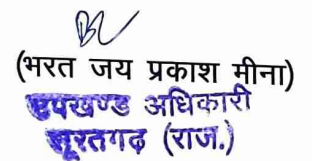 (भरत जय प्रकाश मीना)
उपखण्ड अधिकारी
सूरतगढ़ (राज.)